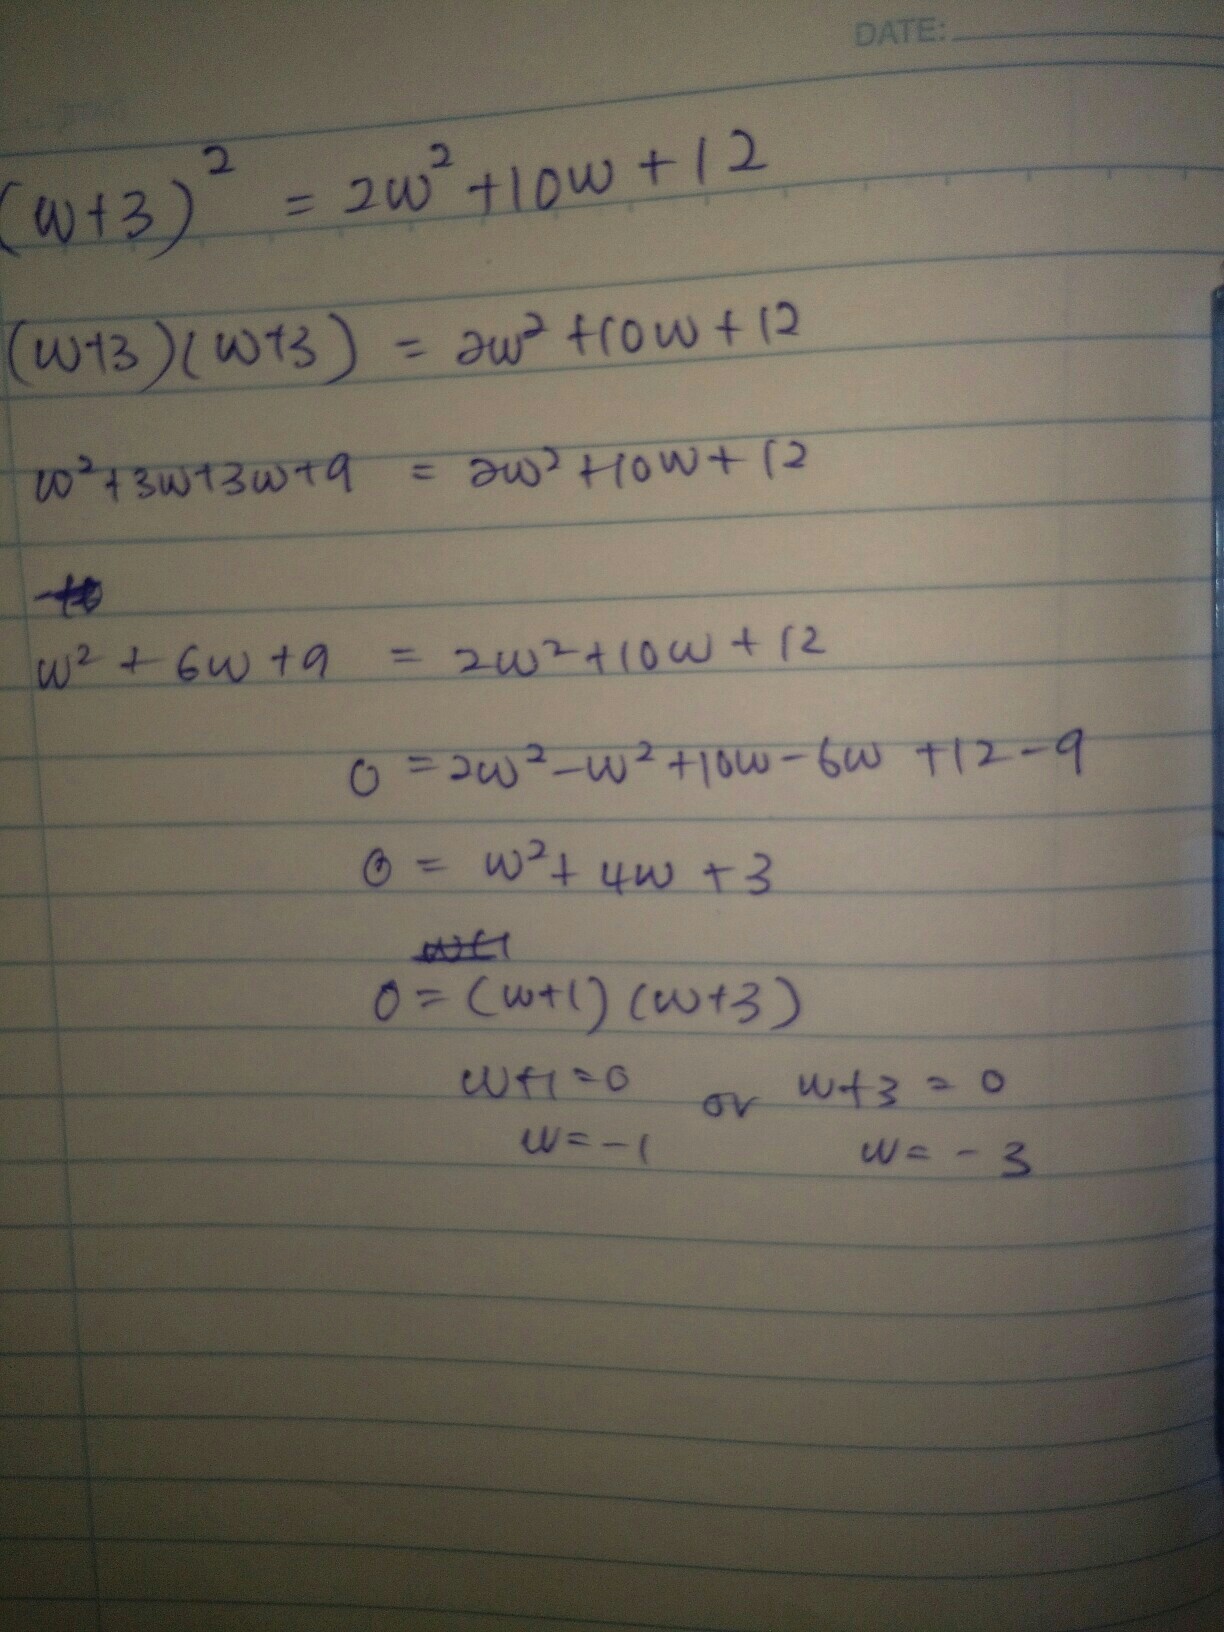 DATE:
(w+3)² = 2w² +10w + 12
(w+3)(w+3) = 2w² +10w + 12
w²+3w+3w+9 = 2w² +10w + 12
w² + 6w +9 = 2w² +10w + 12
0 = 2w² -w² +10w - 6w +12 - 9
0 = w² + 4w + 3
w+1
0 = (w+1) (w+3)
w+1 = 0 or w+3 = 0
w = -1 w = - 3